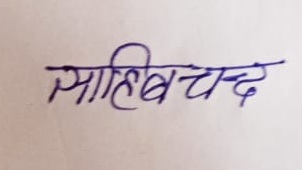 साहिब चन्द